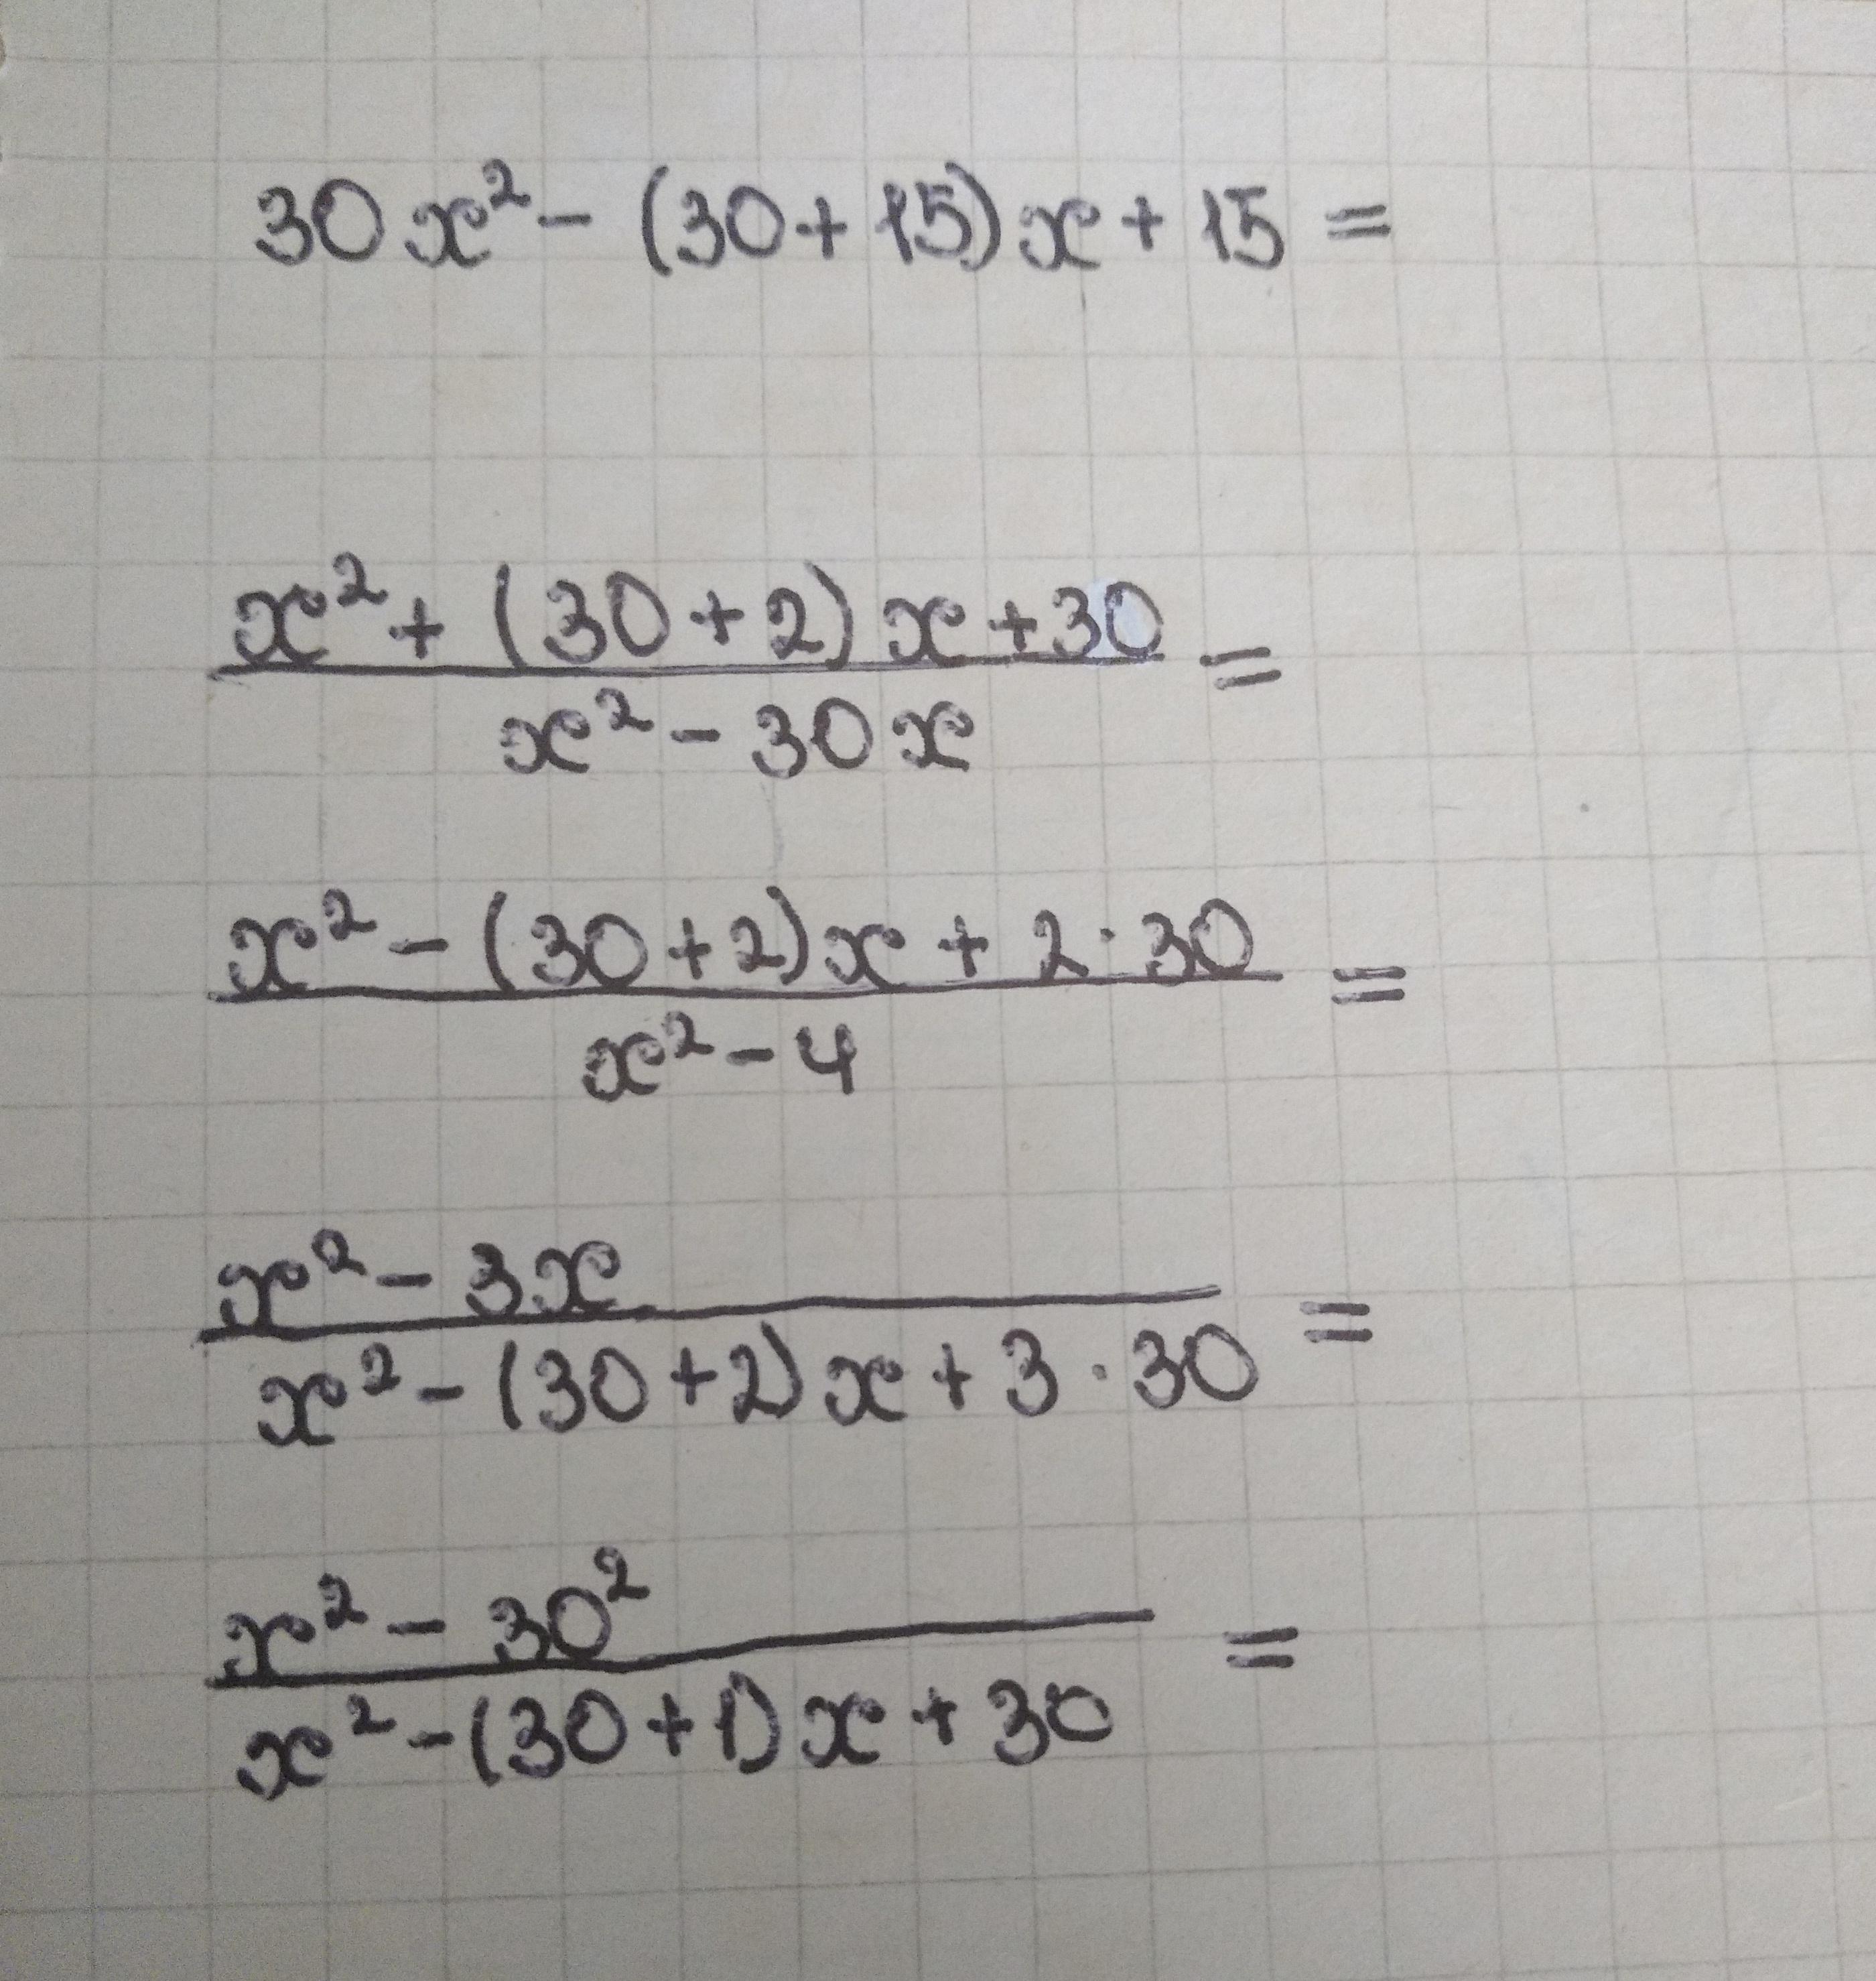 30x² - (30+15)x + 15 =
x² + (30+2)x + 30
=
x² - 30x
x² - (30+2)x + 2·30
=
x² - 4
x² - 3x
=
x² - (30+2)x + 3·30
x² - 30²
=
x² - (30+1)x + 30